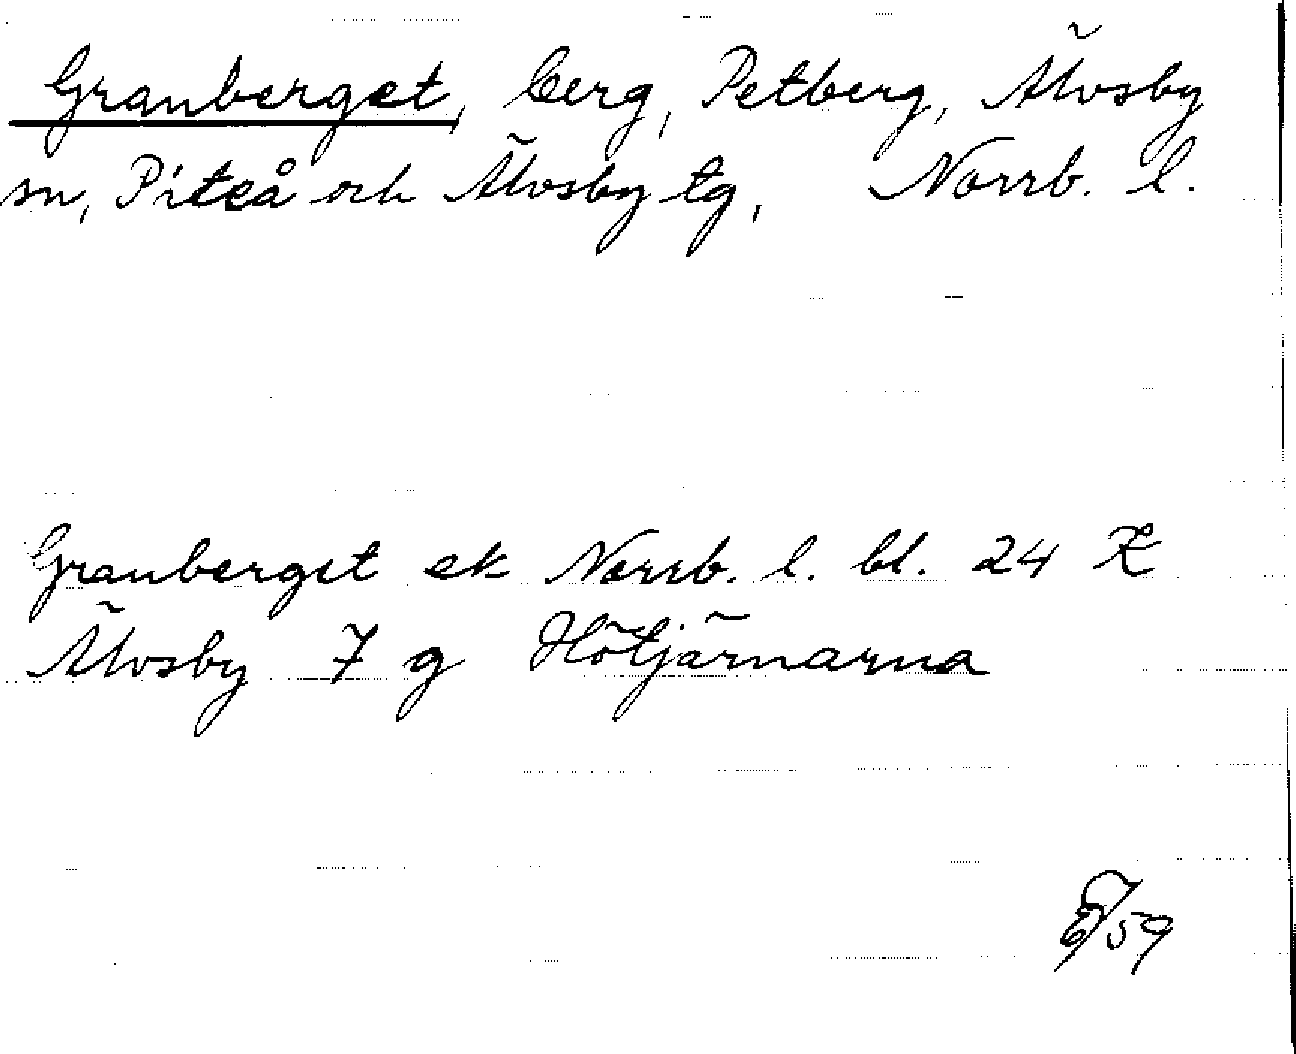 Granberget, berg, Petberg, Älvsby
sn, Piteå och Älvsby tg, Norrb. l.
Granberget ek Norrb. l. bl. 24 K
Älvsby 7 g Hötjärnarna
59